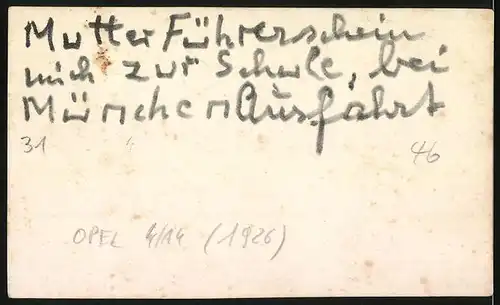 Mutter Führerschein
mich zur Schule, bei
München Ausfahrt
31 46
OPEL 4/14 (1926)